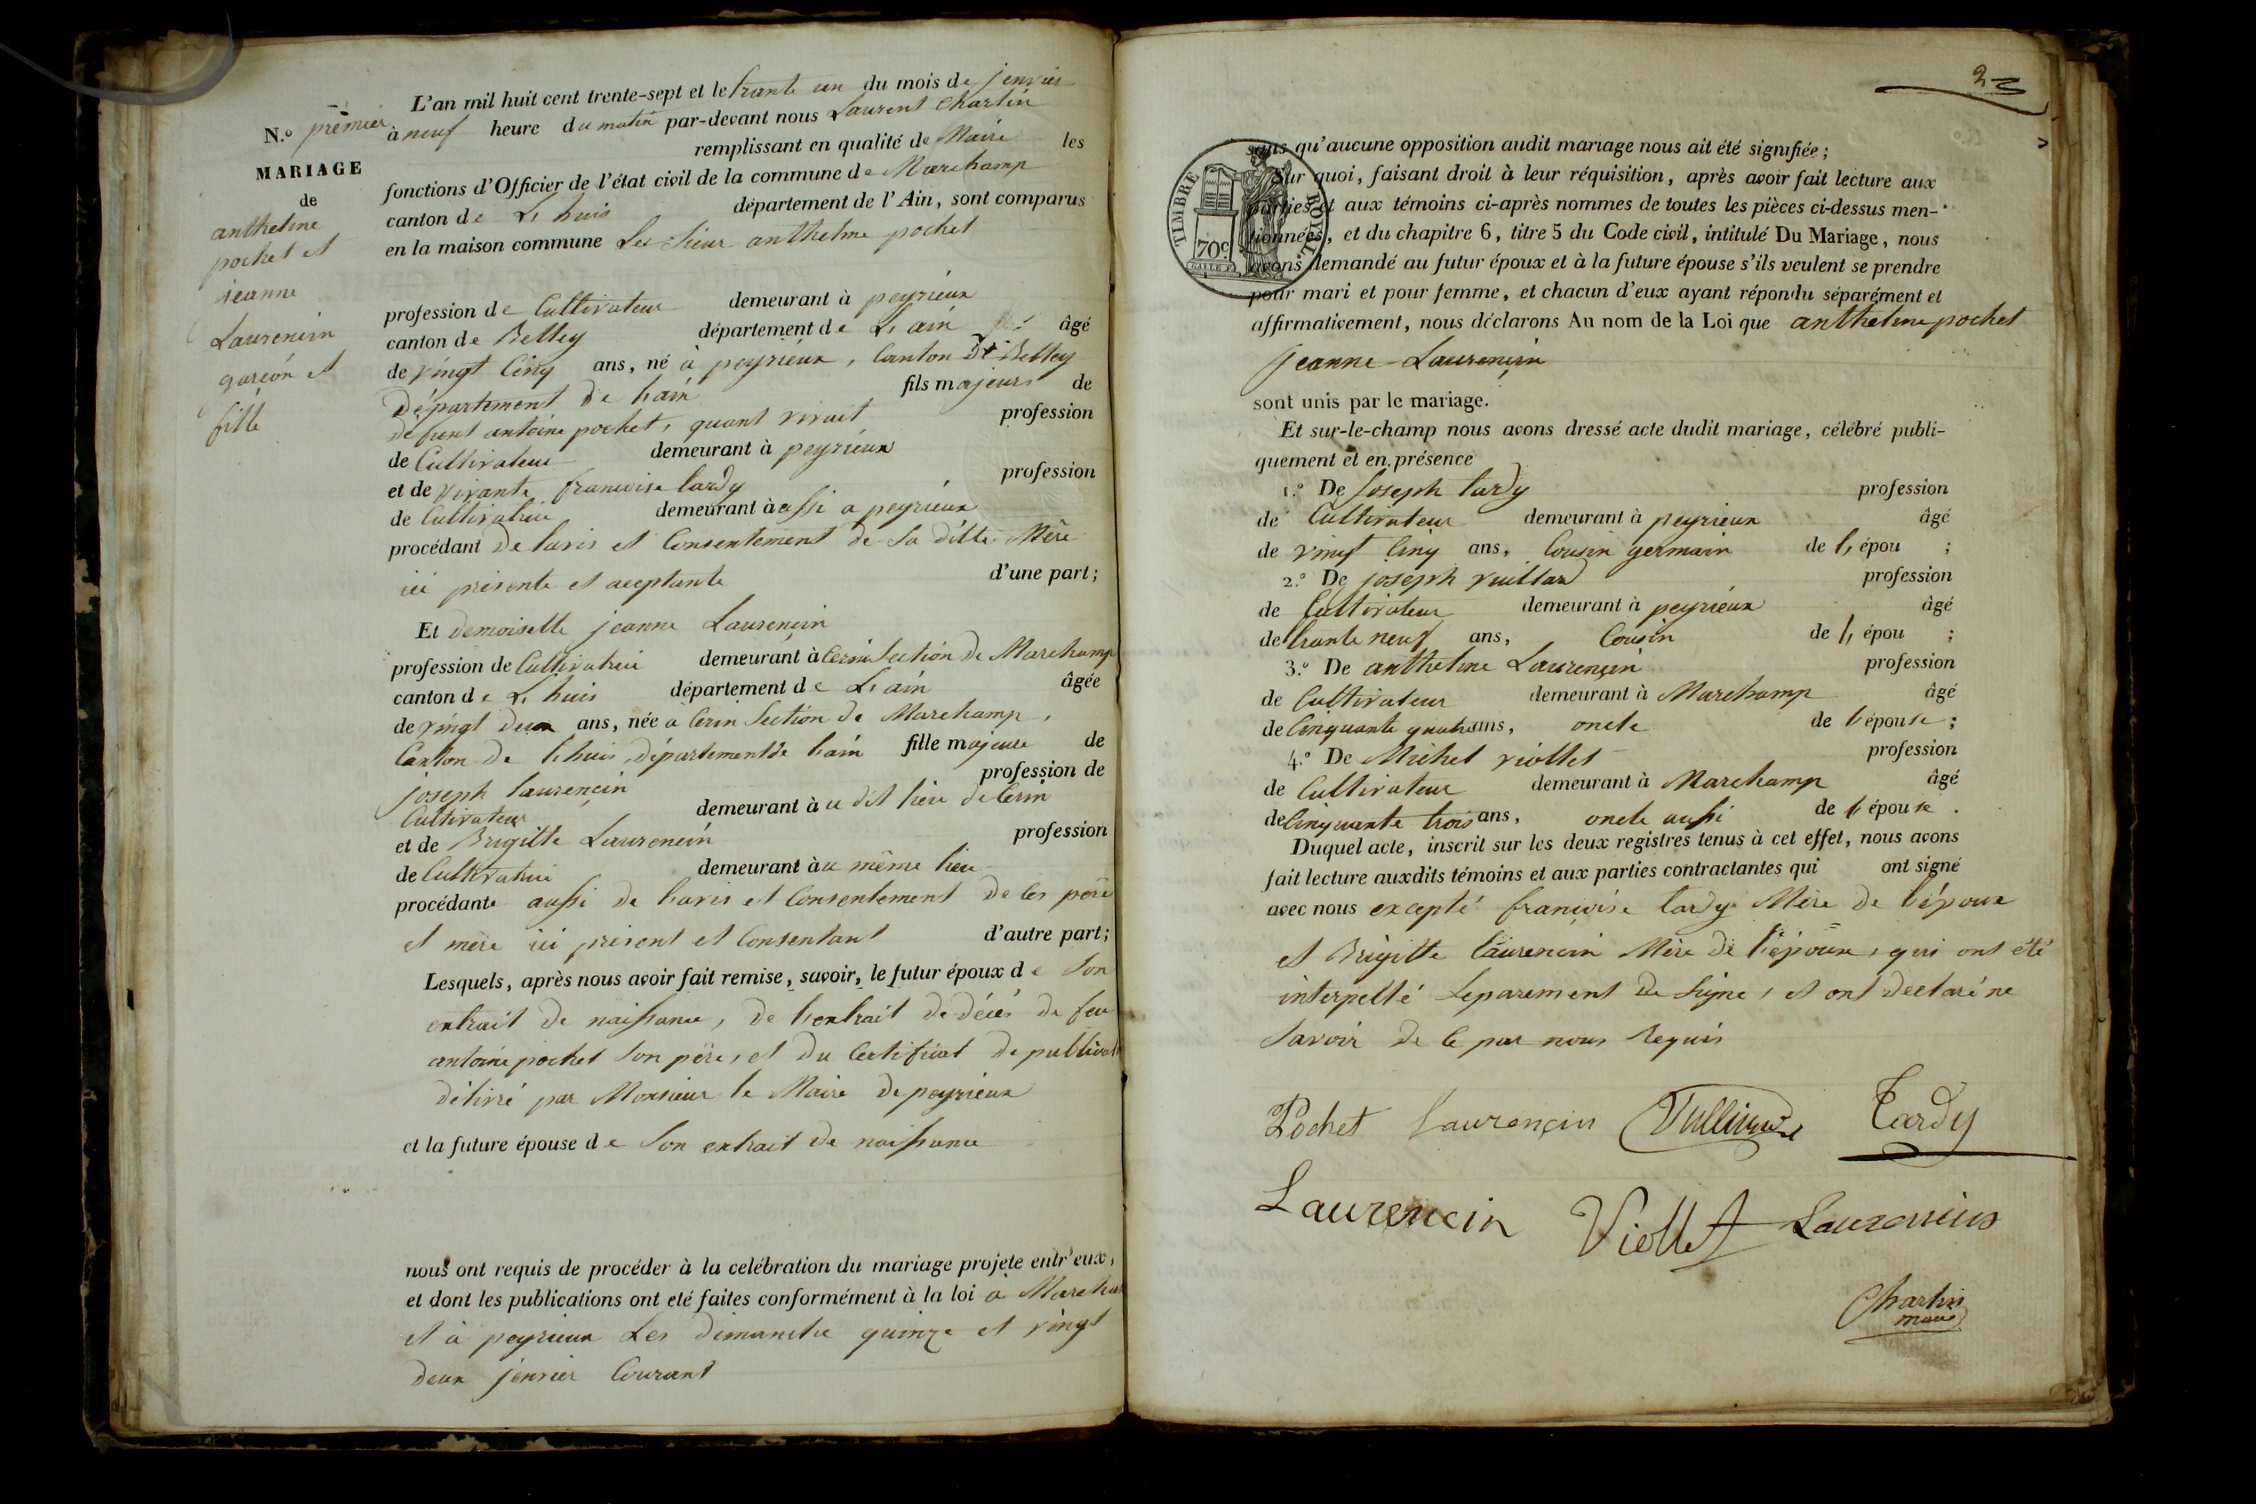 N.º premier
MARIAGE
de
anthelme
pochet et
jeanne
Laurencin
garcon et
fille
L'an mil huit cent trente-sept et le trante un du mois de jenvier
à neuf heure du matin par-devant nous Laurent Chartin
remplissant en qualité de Maire les
fonctions d'Officier de l'état civil de la commune de Marchamp
canton de L, huis département de l'Ain, sont comparus
en la maison commune Les Sieur anthelme pochet
profession de Cultivateur demeurant à peyrieux
canton de Belley département de L, ain âgé
de vingt Cinq ans, né à peyrieux, Canton De Belley
Département de L'ain fils majeur de
defunt antoine pochet, quant vivait profession
de Cultivateur demeurant à peyrieux
et de vivante francoise tardy profession
de Cultivatrice demeurant à assi a peyrieux
procédant de lavis et Consentement de Sa ditte Mère
ici présente et aceptante d'une part;
Et demoiselle jeanne Laurencin
profession de Cultivatrice demeurant à Cerin Section de Marchamp
canton de L, huis département de L, ain âgée
de vingt deux ans, née à Cerin Section de Marchamp,
Canton de lhuis, département de l'ain fille majeure de
joseph laurencin profession de
Cultivateur demeurant à u dit lieu de Cerin
et de Brigitte Laurencin profession
de Cultivatrice demeurant à u même lieu
procédante aussi de l'avis et Consentement de Ces père
et mère ici présent et Consentant d'autre part;
Lesquels, après nous avoir fait remise, savoir, le futur époux de Son
extrait de naissance, de l'extrait de décés de feu
antoine pochet Son père, et du Certificat de
délivré par Monsieur le Maire de peyrieux
et la future épouse de Son extrait de naissance
nous ont requis de procéder à la celébration du mariage projete entr'eux,
et dont les publications ont eté faites conformément à la loi à
et à peyrieux Les dimanche quinze et vingt
deux jenvier Courant
2
TIMBRE ROYAL
70c
sans qu'aucune opposition audit mariage nous ait été signifiée;
Sur quoi, faisant droit à leur réquisition, après avoir fait lecture aux
parties et aux témoins ci-après nommes de toutes les pièces ci-dessus men-
tionnées, et du chapitre 6, titre 5 du Code civil, intitulé Du Mariage, nous
avons demandé au futur époux et à la future épouse s'ils veulent se prendre
pour mari et pour femme, et chacun d'eux ayant répondu séparément et
affirmativement, nous déclarons Au nom de la Loi que anthelme pochet
jeanne Laurencin
sont unis par le mariage.
Et sur-le-champ nous avons dressé acte dudit mariage, célébré publi-
quement et en présence
1.º De Joseph tardy profession
de Cultivateur demeurant à peyrieux âgé
de vinct Cinq ans, Cousin germain de l, épou ;
2.º De joseph vuillard profession
de Cultivateur demeurant à peyrieux âgé
de trante neuf ans, Cousin de l, épou ;
3.º De anthelme Laurençin profession
de Cultivateur demeurant à Marchamp âgé
de Cinquante quatre ans, oncle de l'épouse;
4.º De Michel viollet profession
de Cultivateur demeurant à Marchamp âgé
de Cinquante trois ans, oncle aussi de l'épouse.
Duquel acte, inscrit sur les deux registres tenus à cet effet, nous avons
fait lecture auxdits témoins et aux parties contractantes qui ont signé
avec nous excepté francoise tardy Mère de l'époux
et Brigitte laurencin Mère de l'épouse, qui ont été
interpellé Separement de Signe, et ont declaré ne
Savoir de Ce par nous Requis
Pochet Laurençin Vulliard Tardy
Laurencin Viollet Laurencin
Chartin
maire